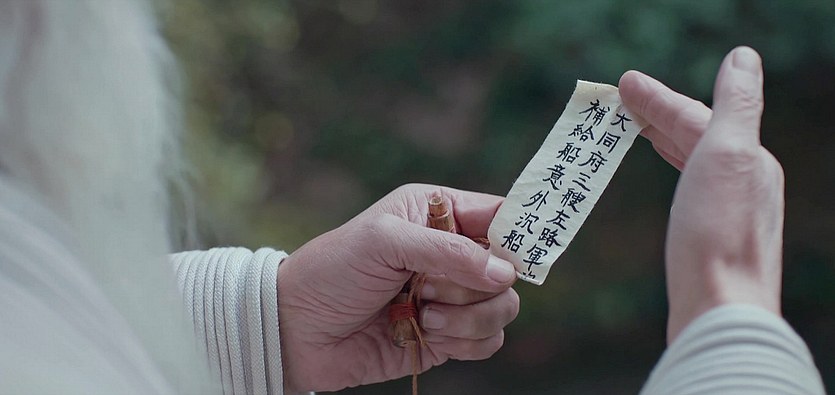 大同府三艘左路軍
補給船意外沉船